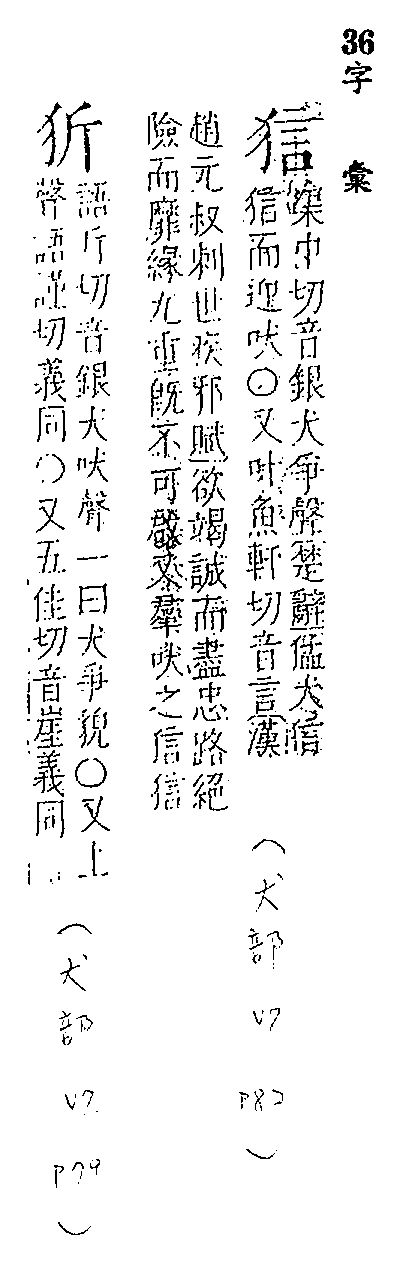 36字彙
㹞渠巾切音銀犬爭聲楚辭猛犬信
信而迎吠〇又叶魚軒切音言漢
趙元叔刺世疾邪賦欲竭誠而盡忠路絕
險而靡緣九重既不可啟又羣吠之信信
（犬部 V7 P82）
犾語斤切音銀犬吠聲一曰犬爭貌〇又上
聲語謹切義同〇又五佳切音崖義同
（犬部 V7 P79）